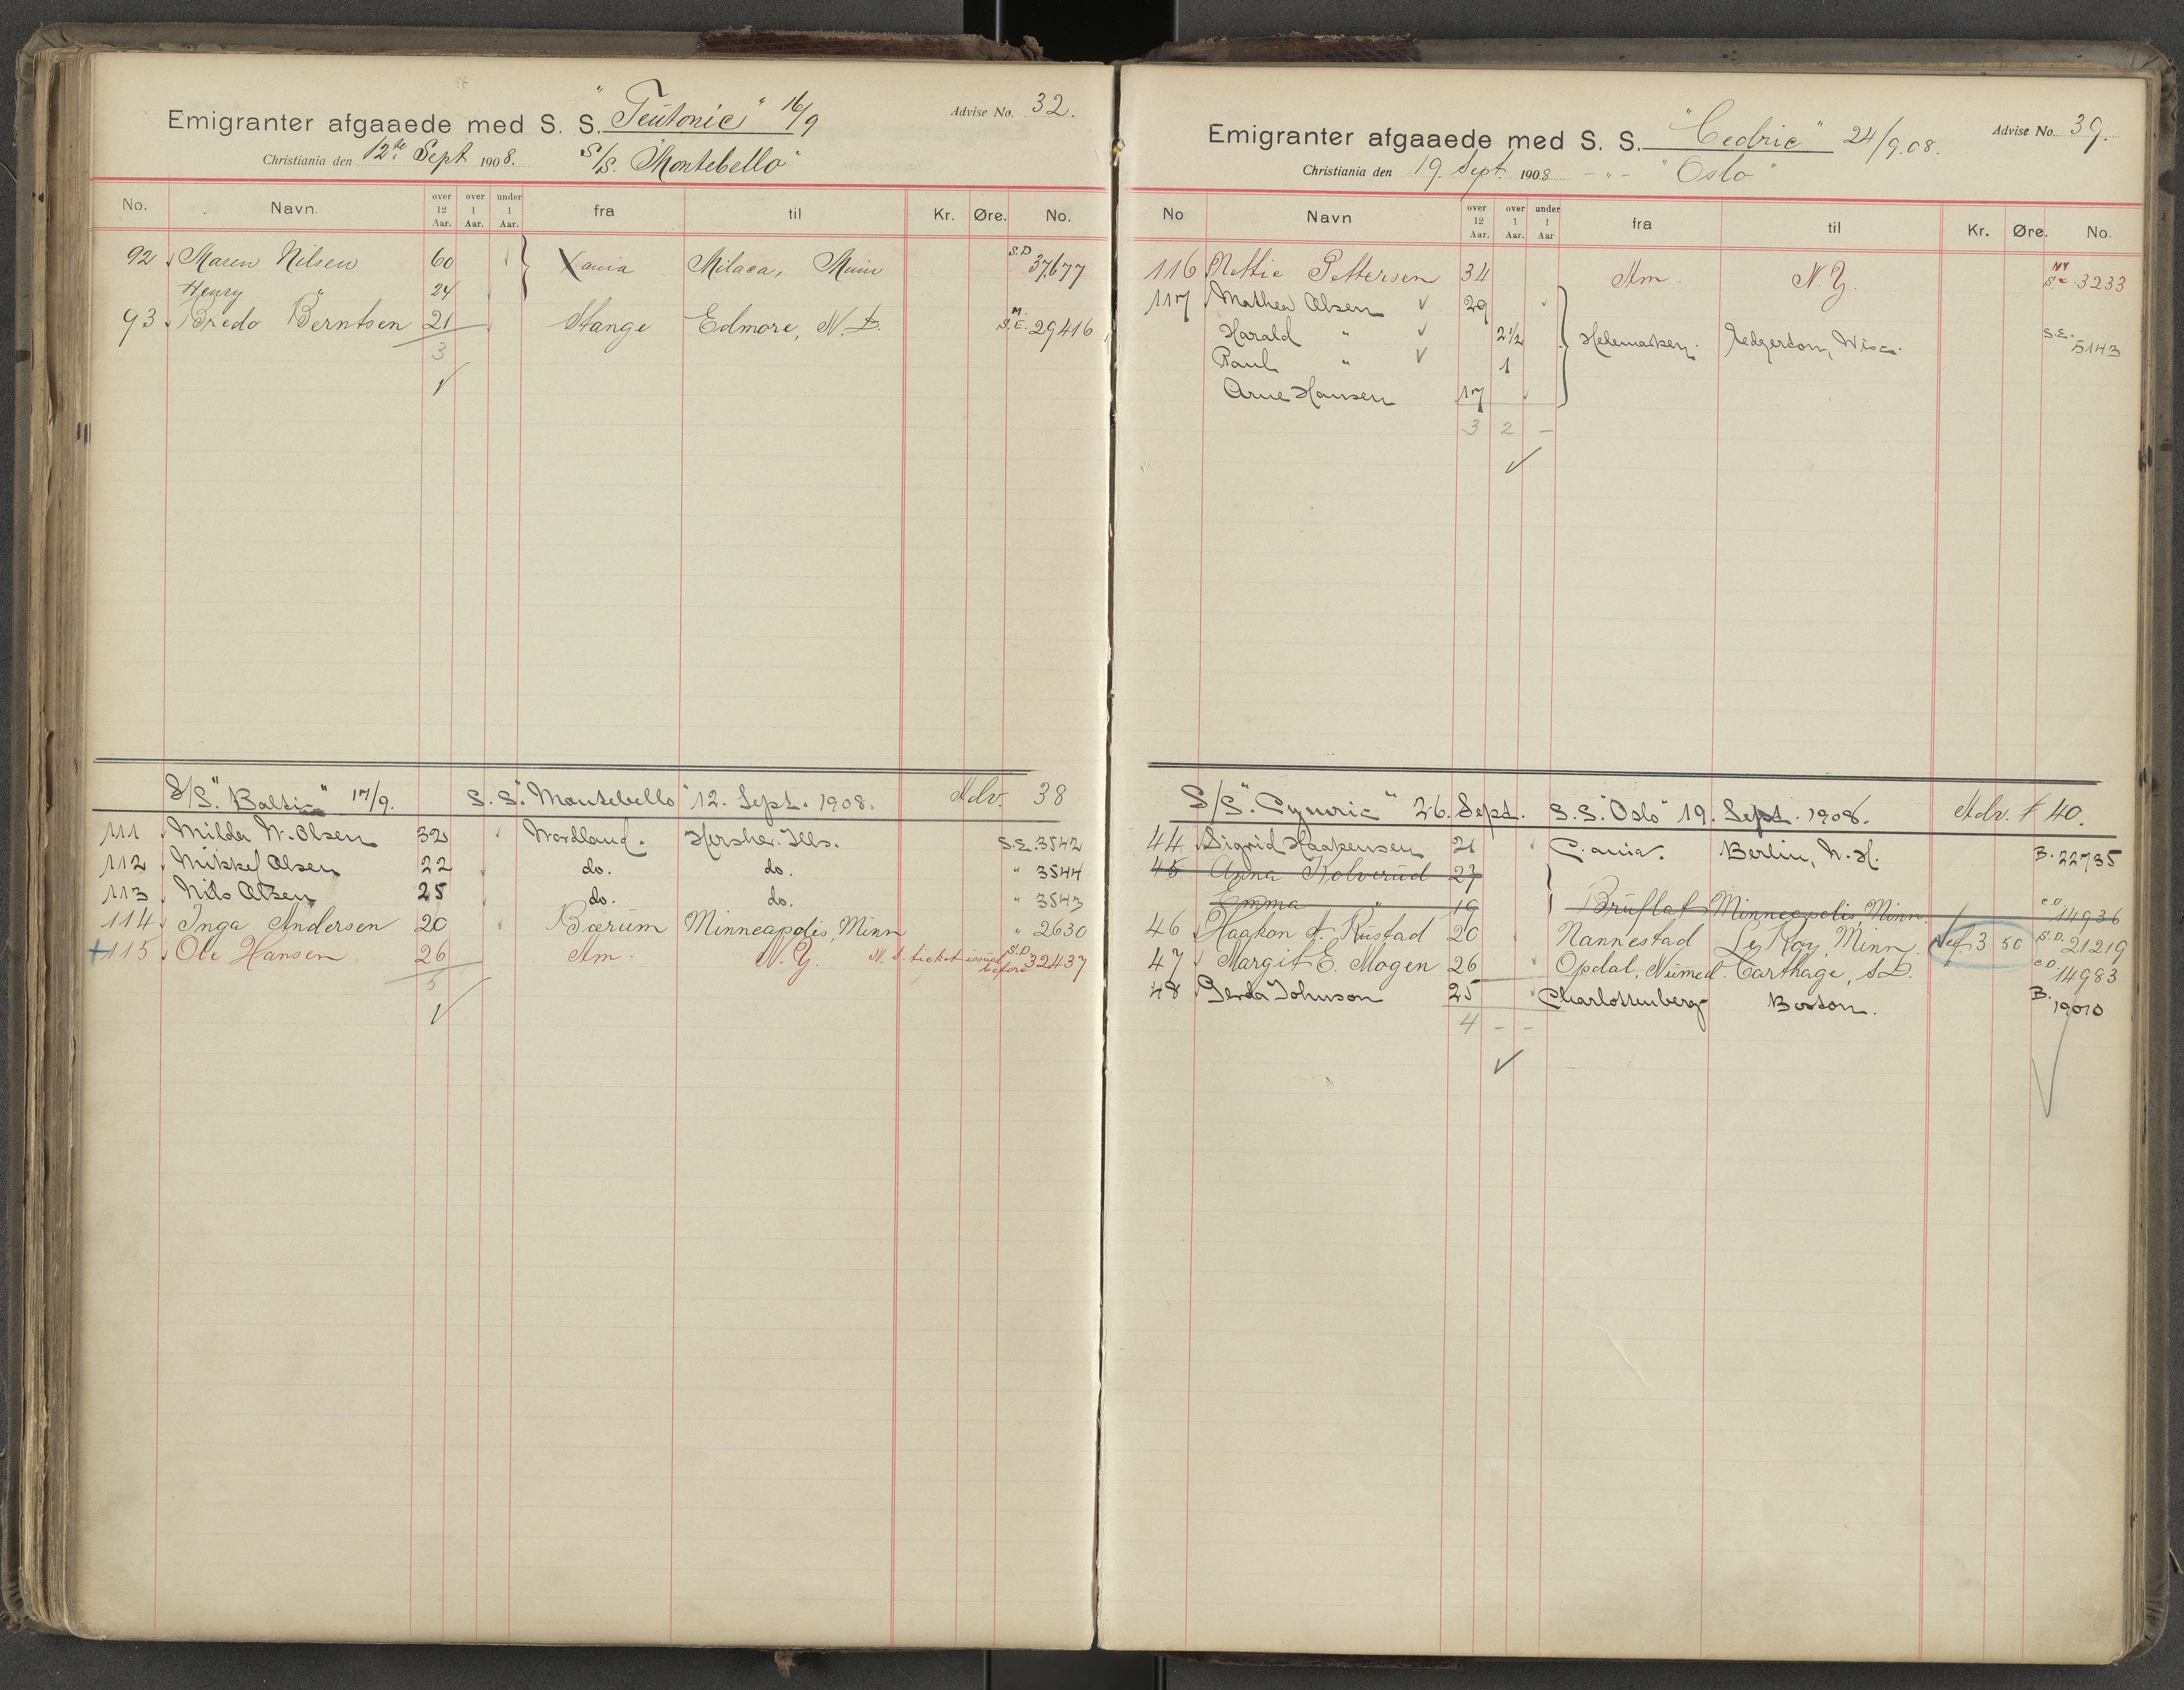 Emigranter afgaaede med S. S. "Teutonic" 16/9
Advise No. 32.
Christiania den 12te Sept 1908. S/S. "Montebello"
No. Navn. over 12 Aar. over 1 Aar. under 1 Aar. fra til Kr. Øre. No.
92 Maren Nilsen 60 Xania Milaca, Minn S.D 37677
Henry " 24
93 Bredo Berntsen 21 Stange Edmore, N. D. M. S.E. 29416
3
S/S. "Baltic" 17/9. S. S. "Montebello" 12. Sept. 1908. Adv. 38
111 Milda N. Olsen 32 Nordland. Hersher. Ills. S.E. 3542
112 Mikkel Olsen 22 do. do. " 3544
113 Nils Olsen 25 do. do. " 3543
114 Inga Andersen 20 Bærum Minneapolis, Minn " 2630
+115 Ole Hansen 26 Am. N. Y. N. S. ticket issued before S.D. 32437
5
Emigranter afgaaede med S. S. "Cedric" 24/9.08.
Advise No. 39.
Christiania den 19. Sept. 1908 - " - "Oslo"
No Navn over 12 Aar. over 1 Aar. under 1 Aar fra til Kr. Øre. No.
116 Nettie Pettersen 34 Am. N. Y. NY 3233
117 Mathea Olsen 29
Harald " 2 1/2 Helemarken. Redgerton, Wisc. S.E. 5143
Paul " 1
Arne Hansen 17
3 2 -
S/S. "Cymric" 26. Sept. S. S. "Oslo" 19. Sept. 1908. Adv. # 40.
44 Sigrid Haakensen 21 C.ania. Berlin, N. H. B. 22735
45 Anna Kolverud 27
Emma " 19 Bruflat Minneapolis, Minn. C.D. 14936
46 Haakon A. Rustad 20 Nannestad Le Roy, Minn. Nef. 3 50 S.D. 21219
47 Margit E. Mogen 26 Opdal, Numed. Carthage, S. D. C.D. 14983
48 Gerda Johnson 25 Charlottenberg Boston. B. 19010
4 - -